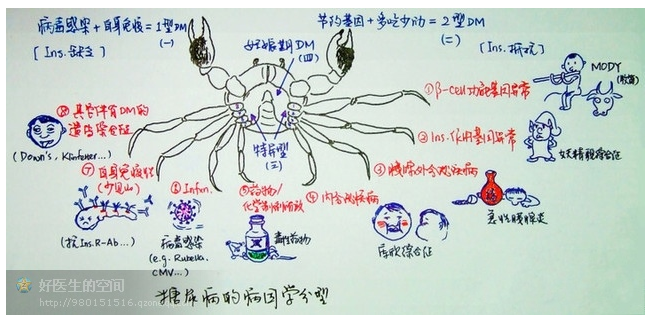 病毒感染+自身免疫=1型DM
(一)
[Ins.缺乏]
节约基因+多吃少动=2型DM
(二)
[Ins.抵抗]
妊娠期DM
(四)
特异型
(三)
①β-cell功能基因异常
MODY
②Ins.作用基因异常
妖精貌综合征
③胰腺外分泌疾病
急性胰腺炎
④内分泌疾病
库欣综合征
⑤药物/
化学制剂所致
毒性药物
⑥Infn.
病毒感染
(e.g. Rubella,
CMV...)
⑦自身免疫性
(少见)
(抗Ins.R-Ab...)
⑧具它伴有DM的
遗传综合征
(Down's, Klinfelter...)
糖尿病的病因学分型
好医生的空间
http://980151516.qzon